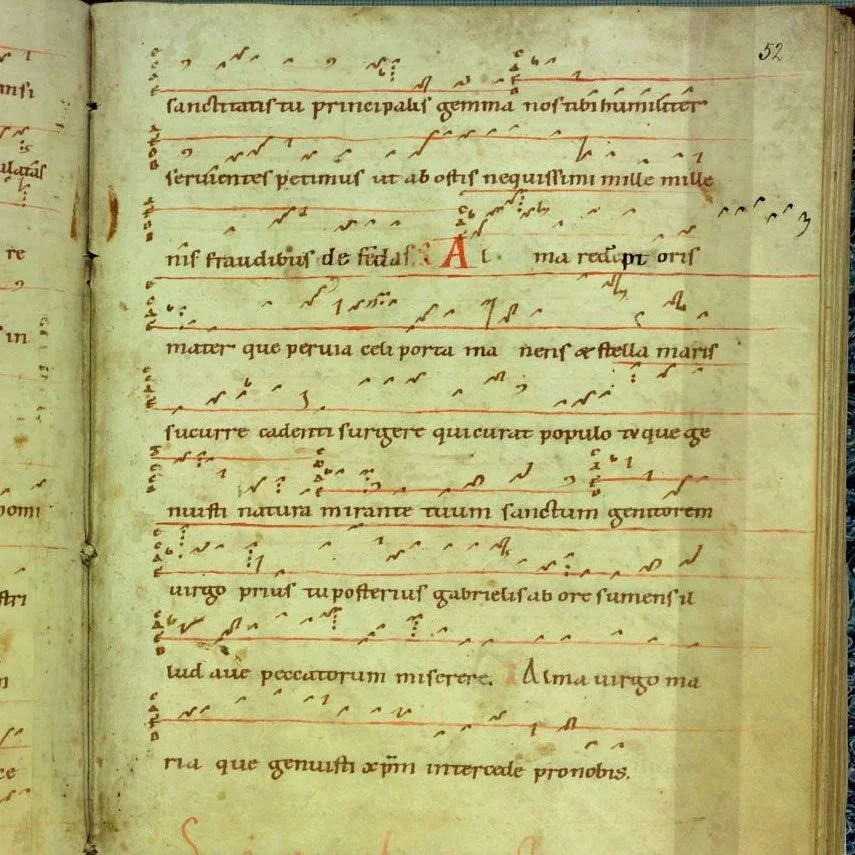 52
sanctitatis tu principalis gemma nos tibi humiliter
servientes petimus ut ab ostis nequissimi mille mille
nis fraudibus de fendas A l ma redēpt oris
mater que pervia celi porta ma nens & stella maris
sucurre cadenti surgere qui curat populo tu que ge
nuisti natura mirante tuum sanctum genitorem
virgo prius tu posterius gabrielis ab ore sumens il
lud ave peccatorum miserere. Alma virgo ma
ria que genuisti xp̄m intercede pro nobis.